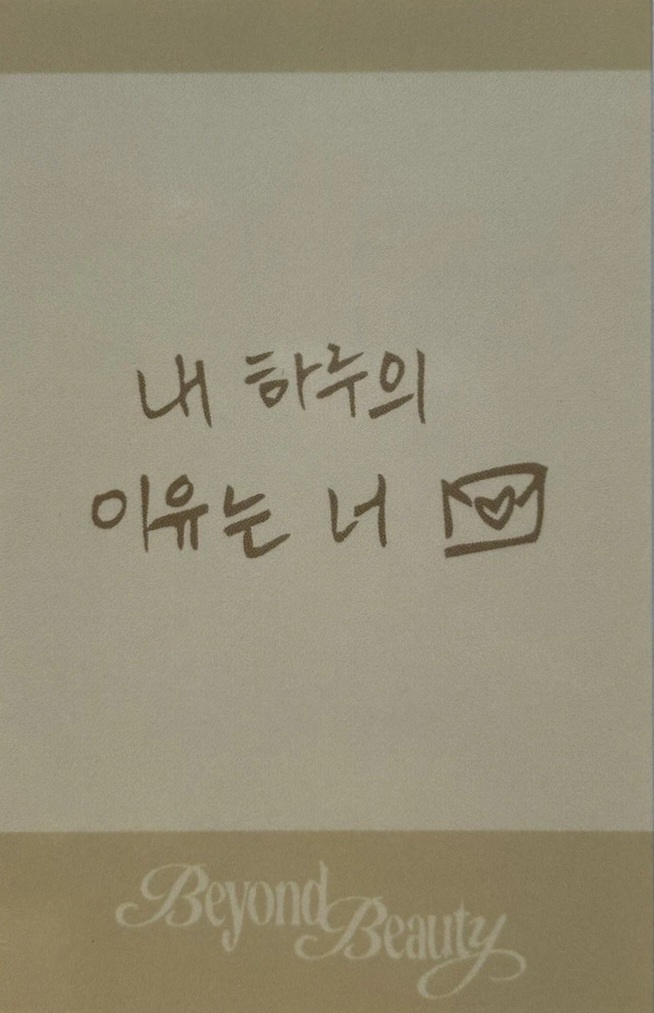 내 하루의
이유는 너
Beyond
Beauty